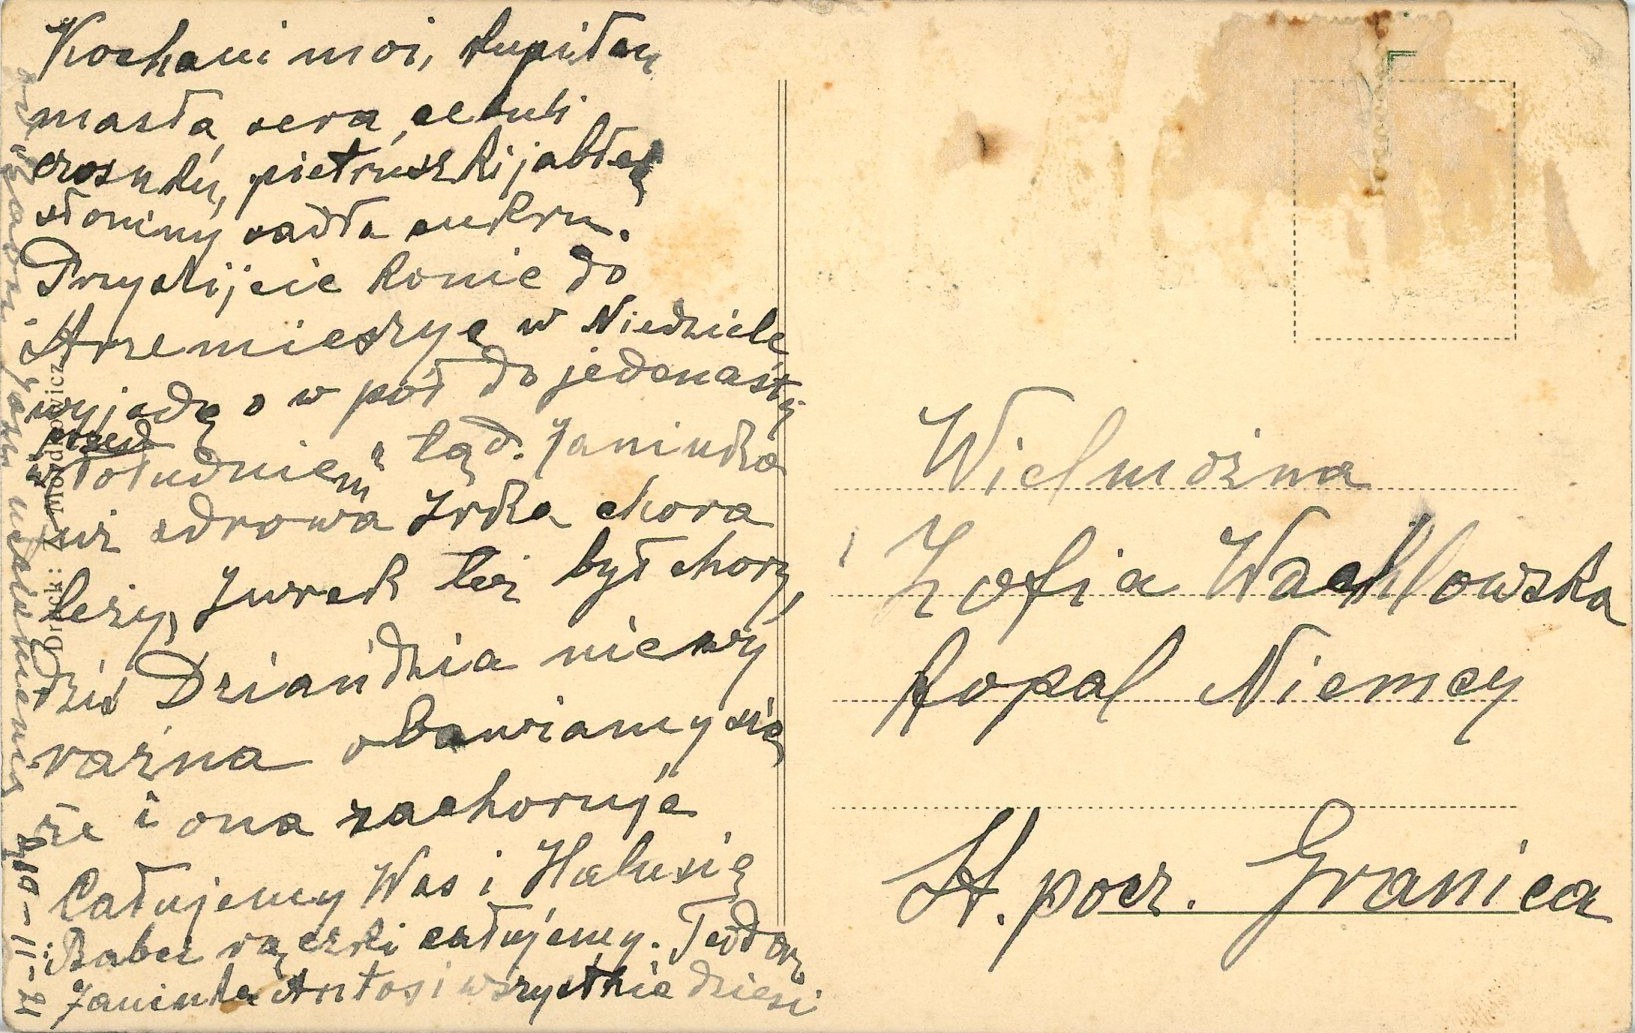 Kochani moi, kupiłem
masła, sera, cebuli
czosnku, pietruszki jabłek
słoniny sadła cukru.
Przyslijcie konie do
Strzemieszyc w Niedziele
wyjadę o w pół do jedenastej
przed
południem tąd. Janinka
już zdrowa Irka chora
leży, Jurek też był chory,
dziś Dziandzia niewy
raźna obawiamy się
że i ona zachoruje
Całujemy Was i Halusię
Babci rączki całujemy. Teodor,
Janinka Antos i wszystkie dzieci
Druck: Z. Mozdzowicz
Wielmożna
Zofia Wachlowska
Kopal Niemcy
St. pocz. Granica